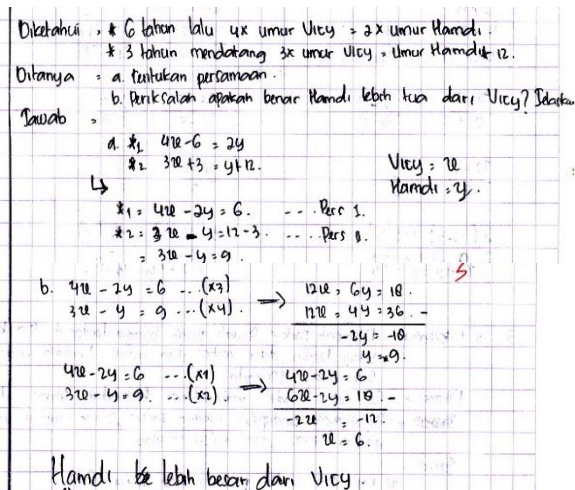 Diketahui : * 6 tahun lalu 4x umur Vicy = 2x umur Hamdi.
* 3 tahun mendatang 3x umur Vicy = umur Hamdi + 12.
Ditanya = a. tentukan persamaan.
b. Periksalah apakah benar Hamdi lebih tua dari Vicy? Jelaskan
Jawab =
a. *1 4x - 6 = 2y
*2 3x + 3 = y + 12.
Vicy = x
Hamdi = y.
*1 = 4x - 2y = 6. ---- Pers 1.
*2 = 3x - y = 12 - 3. ---- Pers 2.
= 3x - y = 9.
5
b. 4x - 2y = 6 ...(x3)
3x - y = 9 ...(x4).
→ 12x = 6y = 18
12x = 4y = 36. -
-2y = -18
y = 9.
4x - 2y = 6 ...(x1)
3x - y = 9. ...(x2).
→ 4x - 2y = 6
6x - 2y = 18 -
-2x = -12.
x = 6.
Hamdi lebih besar dari Vicy.